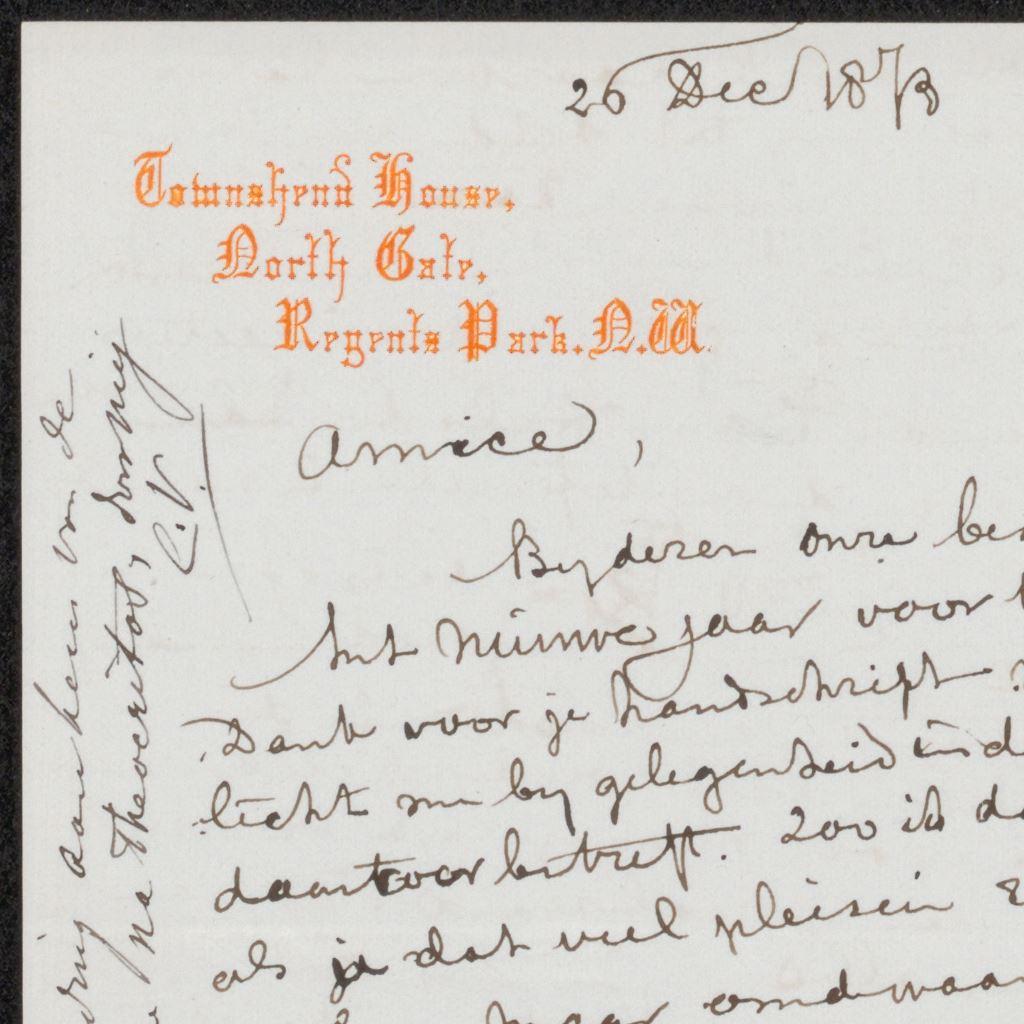 26 Dec 1873
Townshend House,
North Gate,
Regents Park. N.W.
Amice,
By dezen onze
het nieuwe jaar voor
Dank voor je handschrift
licht me by gelegenheid
daarvoor betreft. Zoo ik
als je dat veel pleisier
maar
aan heer van de
na Theocritos,
C.V.